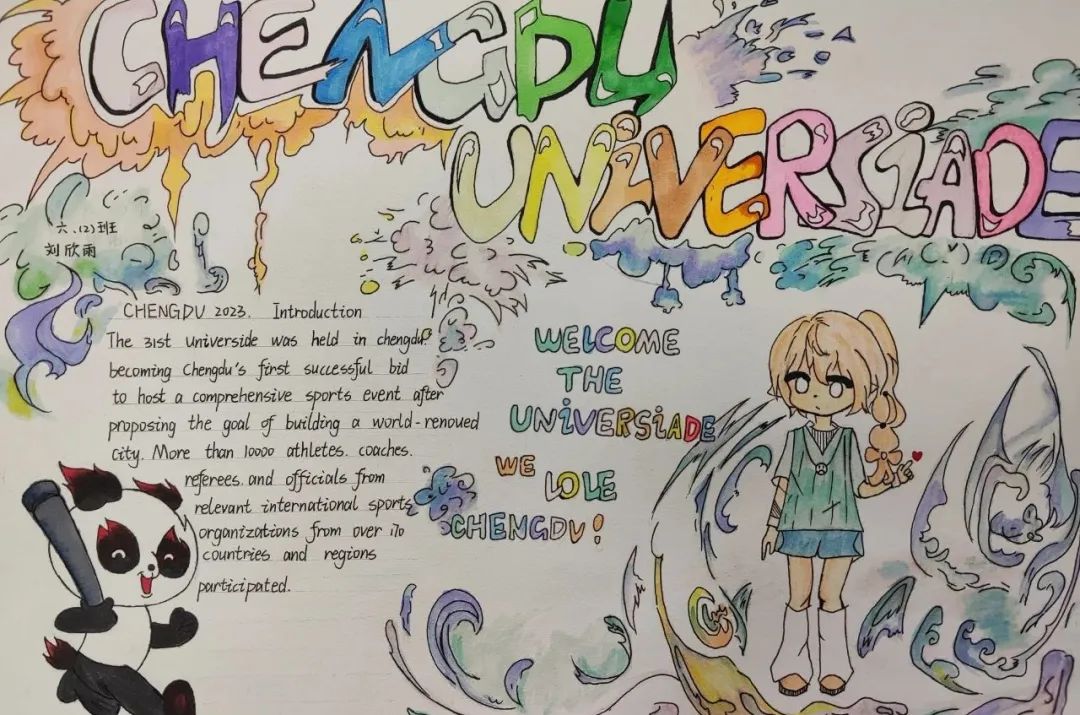 CHENGDU
UNIVERSIADE
六、(2)班
刘欣雨
CHENGDU 2023. Introduction
The 31st universide was held in chengdu?
becoming Chengdu's first successful bid
to host a comprehensive sports event after
proposing the goal of building a world-renoued
city. More than 10000 athletes. coaches.
referees. and officials from
relevant international sports
organizations from over 170
countries and regions
participated.
WELCOME
THE
UNIVERSIADE
WE
LOLE
CHENGDU!